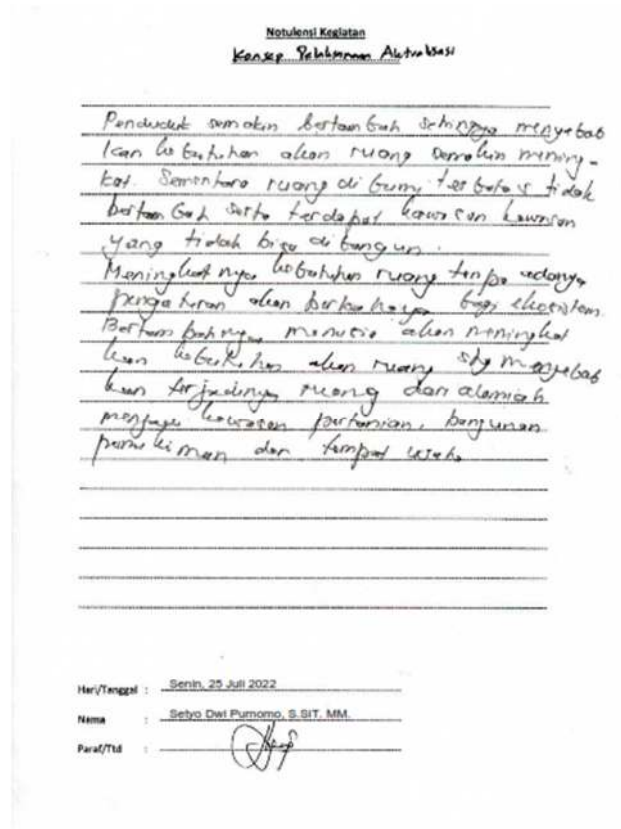 Notulensi Kegiatan
Konsep Pelaksanaan Aktualisasi
Penduduk semakin bertambah sehingga menyebab
kan kebutuhan akan ruang semakin mening-
kat. Sementara ruang di bumi terbatas tidak
bertambah serta terdapat kawasan kawasan
yang tidak bisa dibangun.
Meningkatnya kebutuhan ruang tanpa adanya
pengaturan akan berbahaya bagi ekosistem.
Bertambahnya manusia akan meningkat
kan kebutuhan akan ruang shg menyebab
kan terjadinya ruang dari alamiah
menjadi kawasan pertanian, bangunan
permukiman dan tempat usaha
Hari/Tanggal : Senin, 25 Juli 2022
Nama : Setyo Dwi Purnomo, S.SIT. MM.
Paraf/Ttd :